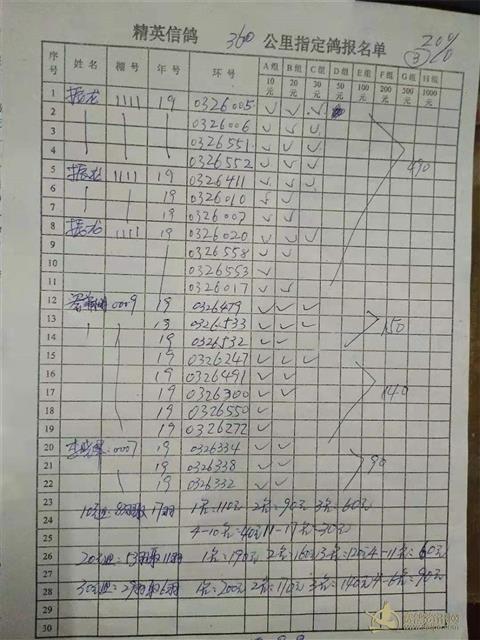 精英信鸽 360 公里指定鸽报名单
③
序号 姓名 棚号 年号 环号 A组 B组 C组 D组 E组 F组 G组 H组
10元 20元 30元 50元 100元 200元 300元 1000元
1 振龙 1111 19 0326005 ✓ ✓ ✓
2 0326006 ✓ ✓ ✓
3 0326551 ✓ ✓ ✓
4 0326552 ✓ ✓ ✓ 490
5 振龙 1111 19 0326411 ✓ ✓ ✓
6 19 0326010 ✓ ✓
7 19 0326007 ✓ ✓
8 振龙 1111 19 0326020 ✓ ✓ ✓
9 0326558 ✓ ✓
10 0326553 ✓
11 0326017 ✓ ✓
12 0009 19 0326479 ✓ ✓ ✓
13 19 0326533 ✓ ✓ ✓ 150
14 19 0326532 ✓ ✓
15 19 0326247 ✓ ✓ ✓
16 19 0326491 ✓ ✓
17 19 0326300 ✓ ✓ 140
18 19 0326550 ✓
19 19 0326272 ✓
20 0007 19 0326334 ✓ ✓
21 19 0326338 ✓ ✓ 90
22 19 0326332 ✓ ✓
23 17羽 1名=110元 2名=90元 3名=60元
24 4-10名=40元 11-17名=30元
25
26 20元组 11羽 1名=190元 2名=160元 3名=120元 4-11名=60元
27
28 30元组 6羽 1名=200元 2名=170元 3名=140元 4-6名=90元
29
30